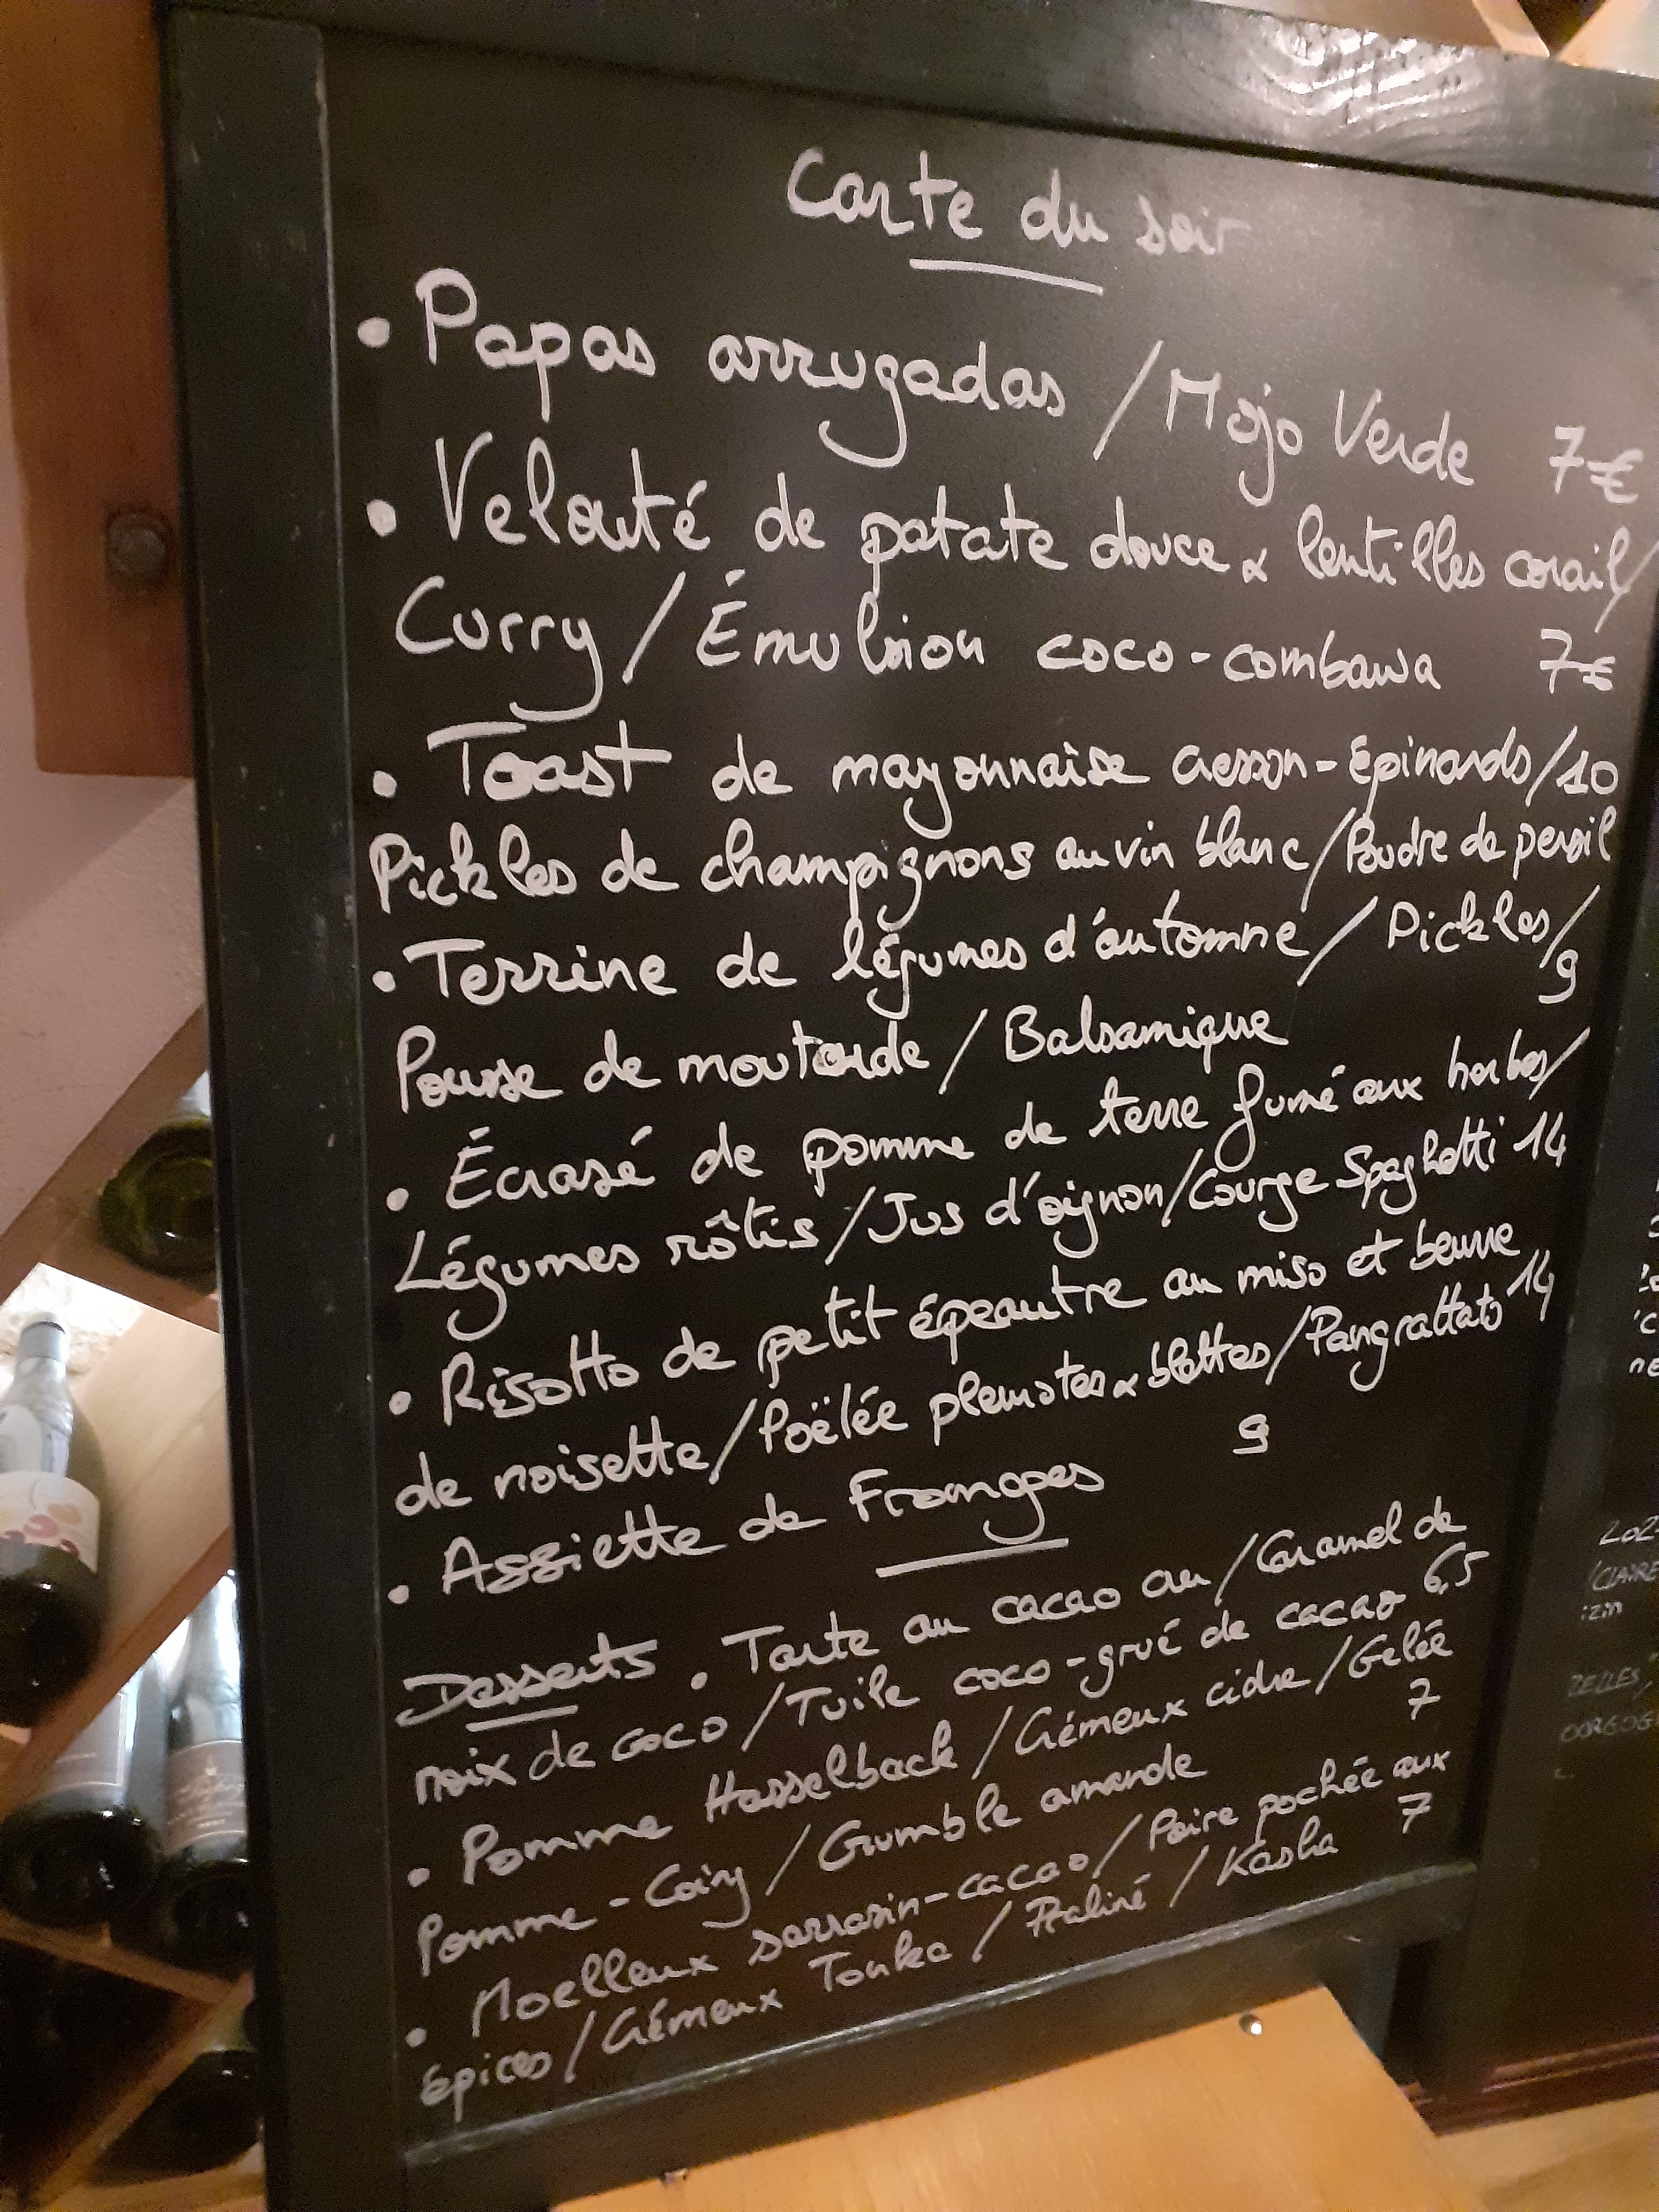 Carte du soir
• Papas arrugadas / Mojo Verde 7€
• Velouté de patate douce & lentilles corail /
Curry / Émulsion coco-combawa 7€
• Toast de mayonnaise cresson-Épinards / 10
Pickles de champignons au vin blanc / Poudre de persil
• Terrine de légumes d'automne / Pickles /
9
Pousse de moutarde / Balsamique
• Écrasé de pomme de terre fumé aux herbes /
Légumes rôtis / Jus d'oignon / Courge Spaghetti 14
• Risotto de petit épeautre au miso et beurre
de noisette / Poëlée pleurotes & blettes / Pangrattato 14
• Assiette de Fromages 9
Desserts . Tarte au cacao cru / Caramel de
noix de coco / Tuile coco-grué de cacao 6,5
• Pomme Hasselback / Crémeux cidre / Gelée
Pomme-Coing / Crumble amande 7
• Moelleux sarrasin-cacao / Poire pochée aux
épices / Crémeux Tonka / Praliné / Kasha 7